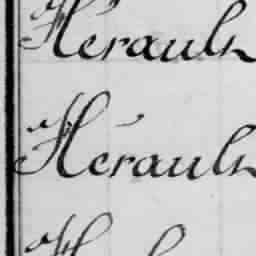 Hérault
Hérault